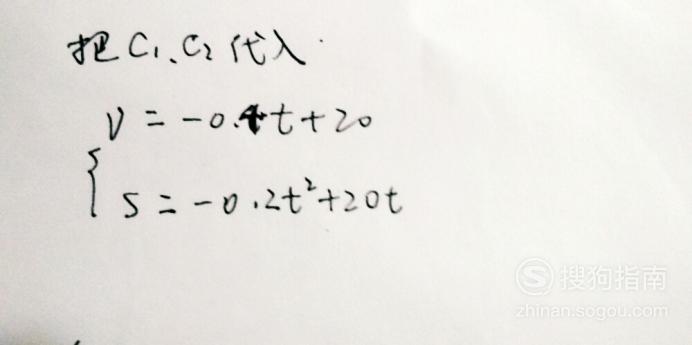 把C₁、C₂代入.
v = -0.4t+20
s = -0.2t²+20t
搜狗指南
zhinan.sogou.com